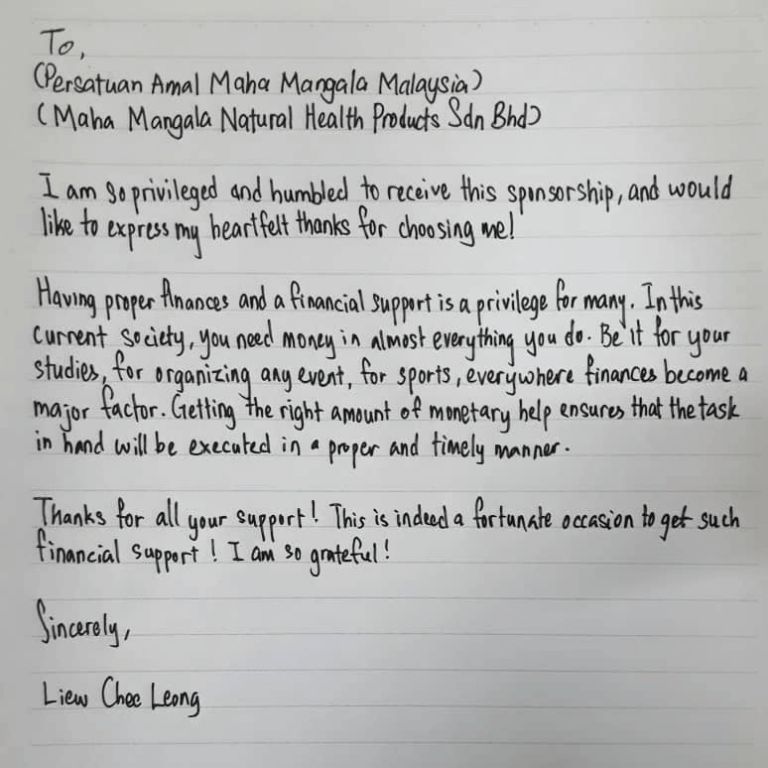 To,
(Persatuan Amal Maha Mangala Malaysia)
(Maha Mangala Natural Health Products Sdn Bhd)
I am so privileged and humbled to receive this sponsorship, and would
like to express my heartfelt thanks for choosing me!
Having proper finances and a financial support is a privilege for many. In this
current society, you need money in almost everything you do. Be it for your
studies, for organizing any event, for sports, everywhere finances become a
major factor. Getting the right amount of monetary help ensures that the task
in hand will be executed in a proper and timely manner.
Thanks for all your support! This is indeed a fortunate occasion to get such
financial support! I am so grateful!
Sincerely,
Liew Chee Leong